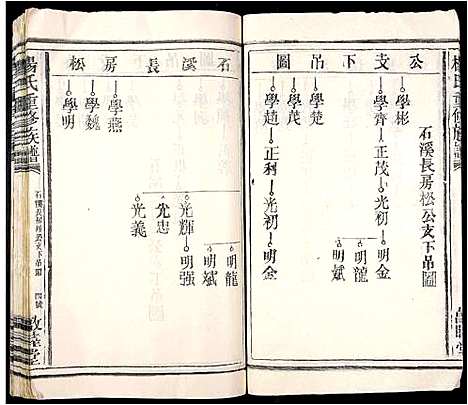 楊氏重修族譜
公支下吊圖
石溪長房松公支下吊圖
學彬
學齊 正茂 光初 明金
明龍
明斌
學楚
學模
學趙 正利 光初 明金
石溪長房松
明龍
明斌
光輝 明强
光忠
光義
學燕
學魏
學明
楊氏重修族譜
石溪長房松公支下吊圖
四號
敦睦堂